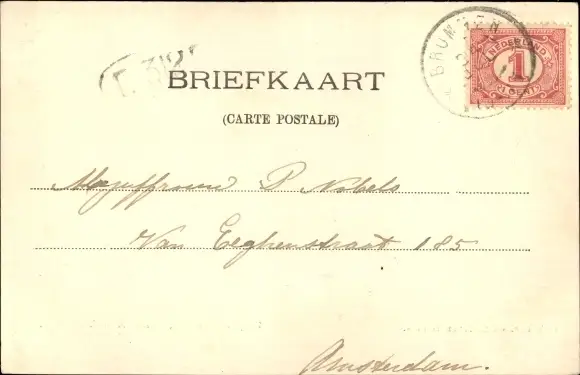 BRUMMEN
NEDERLAND
1
1 CENT
BRIEFKAART
(CARTE POSTALE)
Mejuffrouw P Nobels
Van Eeghenstraat 185
Amsterdam.